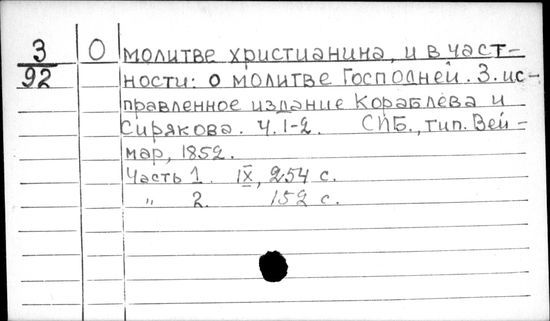 3 О молитве христианина, и в част-
92 ности: о молитве Господней. 3. ис-
правленное издание Кораблева и
Сирякова. Ч. 1-2. СПБ., тип. Вей-
мар, 1852.
Часть 1. IX, 254 с.
" 2. 152 с.